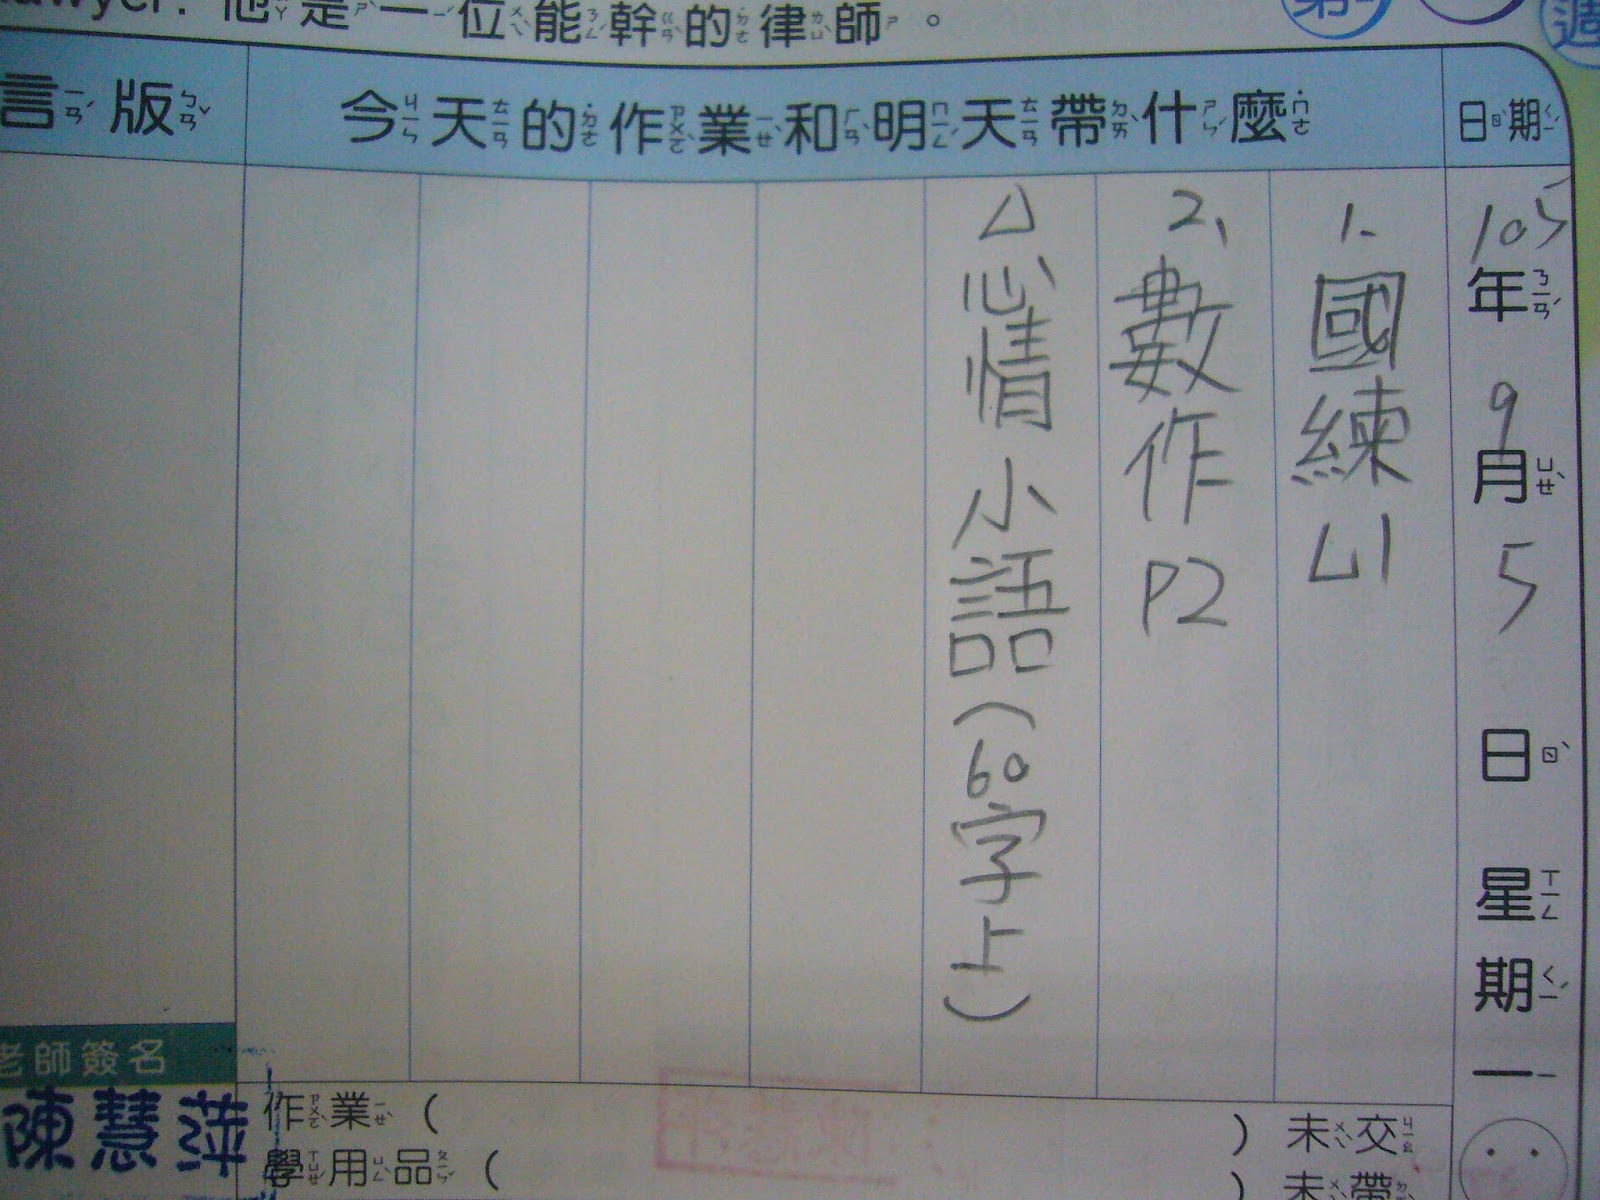 lawyer: 他是一位能幹的律師。
第
週
日期
今天的作業和明天帶什麼
言版
105年9月5日星期一
1. 國練L1
2、數作P2
△心情小語(60字上)
老師簽名
陳慧萍
作業( )未交
學用品( )未帶